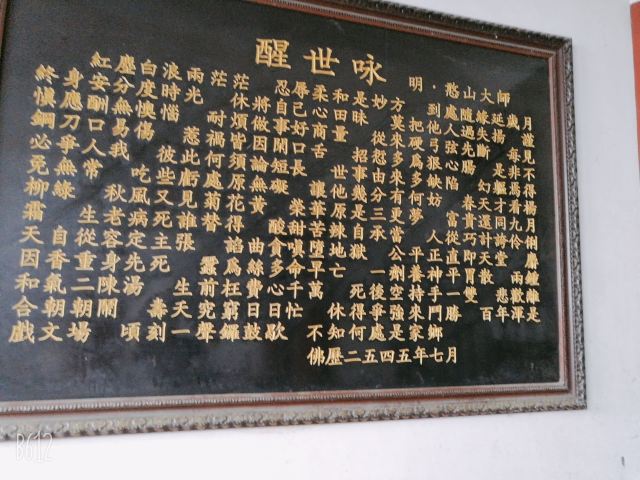 醒世咏
明．憨山大師
紅塵白浪兩茫茫 忍辱柔和是妙方 到處隨緣延歲月
終身安分度時光 休將自己心田昧 莫把他人過失揚
謹慎應酬無懊惱 耐煩做事好商量 從來硬弓弦先斷
每見鋼刀口易傷 惹禍因閑口舌 招愆多為狠心腸
是非不必爭人我 彼此何須論短長 世事由來多缺陷
幻軀焉得免無常 吃些虧處原無礙 讓三分妨
春看楊柳 秋風又見菊花黃 榮華是三更夢
富貴還同九月霜 老病死生誰替得 酸甜苦辣自承當
人從巧計誇伶俐 天自從容定主張 諂曲貪嗔墮地獄
公平正直即天堂 麝因香重身先死 蠶為絲命早亡
一劑養神平胃散 兩鍾和氣二陳湯 生前枉費心千萬
死後空持手一雙 悲歡離合朝朝鬧 壽窮日日忙
休得爭強來鬥勝 百年渾是戲文場 頃刻一聲鑼鼓歇
不知何處是家鄉
佛歷二五四五年七月
B612